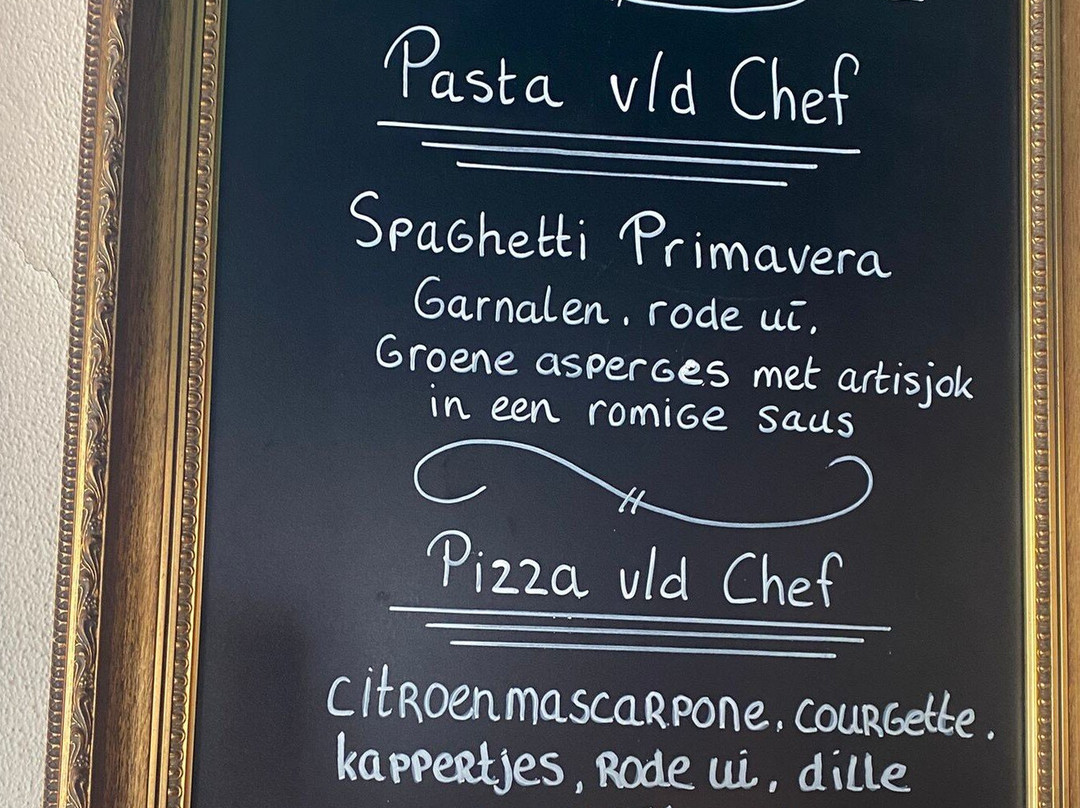 Pasta v/d Chef
Spaghetti Primavera
Garnalen, rode ui,
Groene asperges met artisjok
in een romige saus
Pizza v/d Chef
citroenmascarpone, courgette,
kappertjes, rode ui, dille